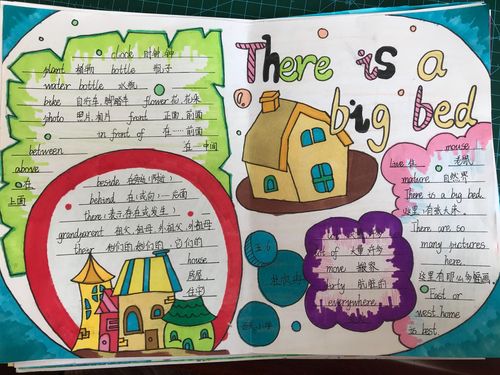 clock 时钟,钟
plant 植物 bottle 瓶子
water bottle 水瓶
bike 自行车,脚踏车 flower 花,花朵
photo 照片,相片 front 正面,前面
in front of 在……前面
between 在…中间
above
在
上面
beside
behind 在(或向)……后面
there (表示存在或发生)
grandparent 祖父,祖母,外祖父,外祖母
their 他们的,她们的,它们的
house
房屋
住宅
There is a
big bed
mouse
老鼠
live 住
nature 自然界
There is a big bed.
这里有张大床。
There are so
many pictures
here.
这里有那么多幅画。
East or
west home
is best.
lot of 大量,许多
move 搬家
dirty 肮脏的
everywhere